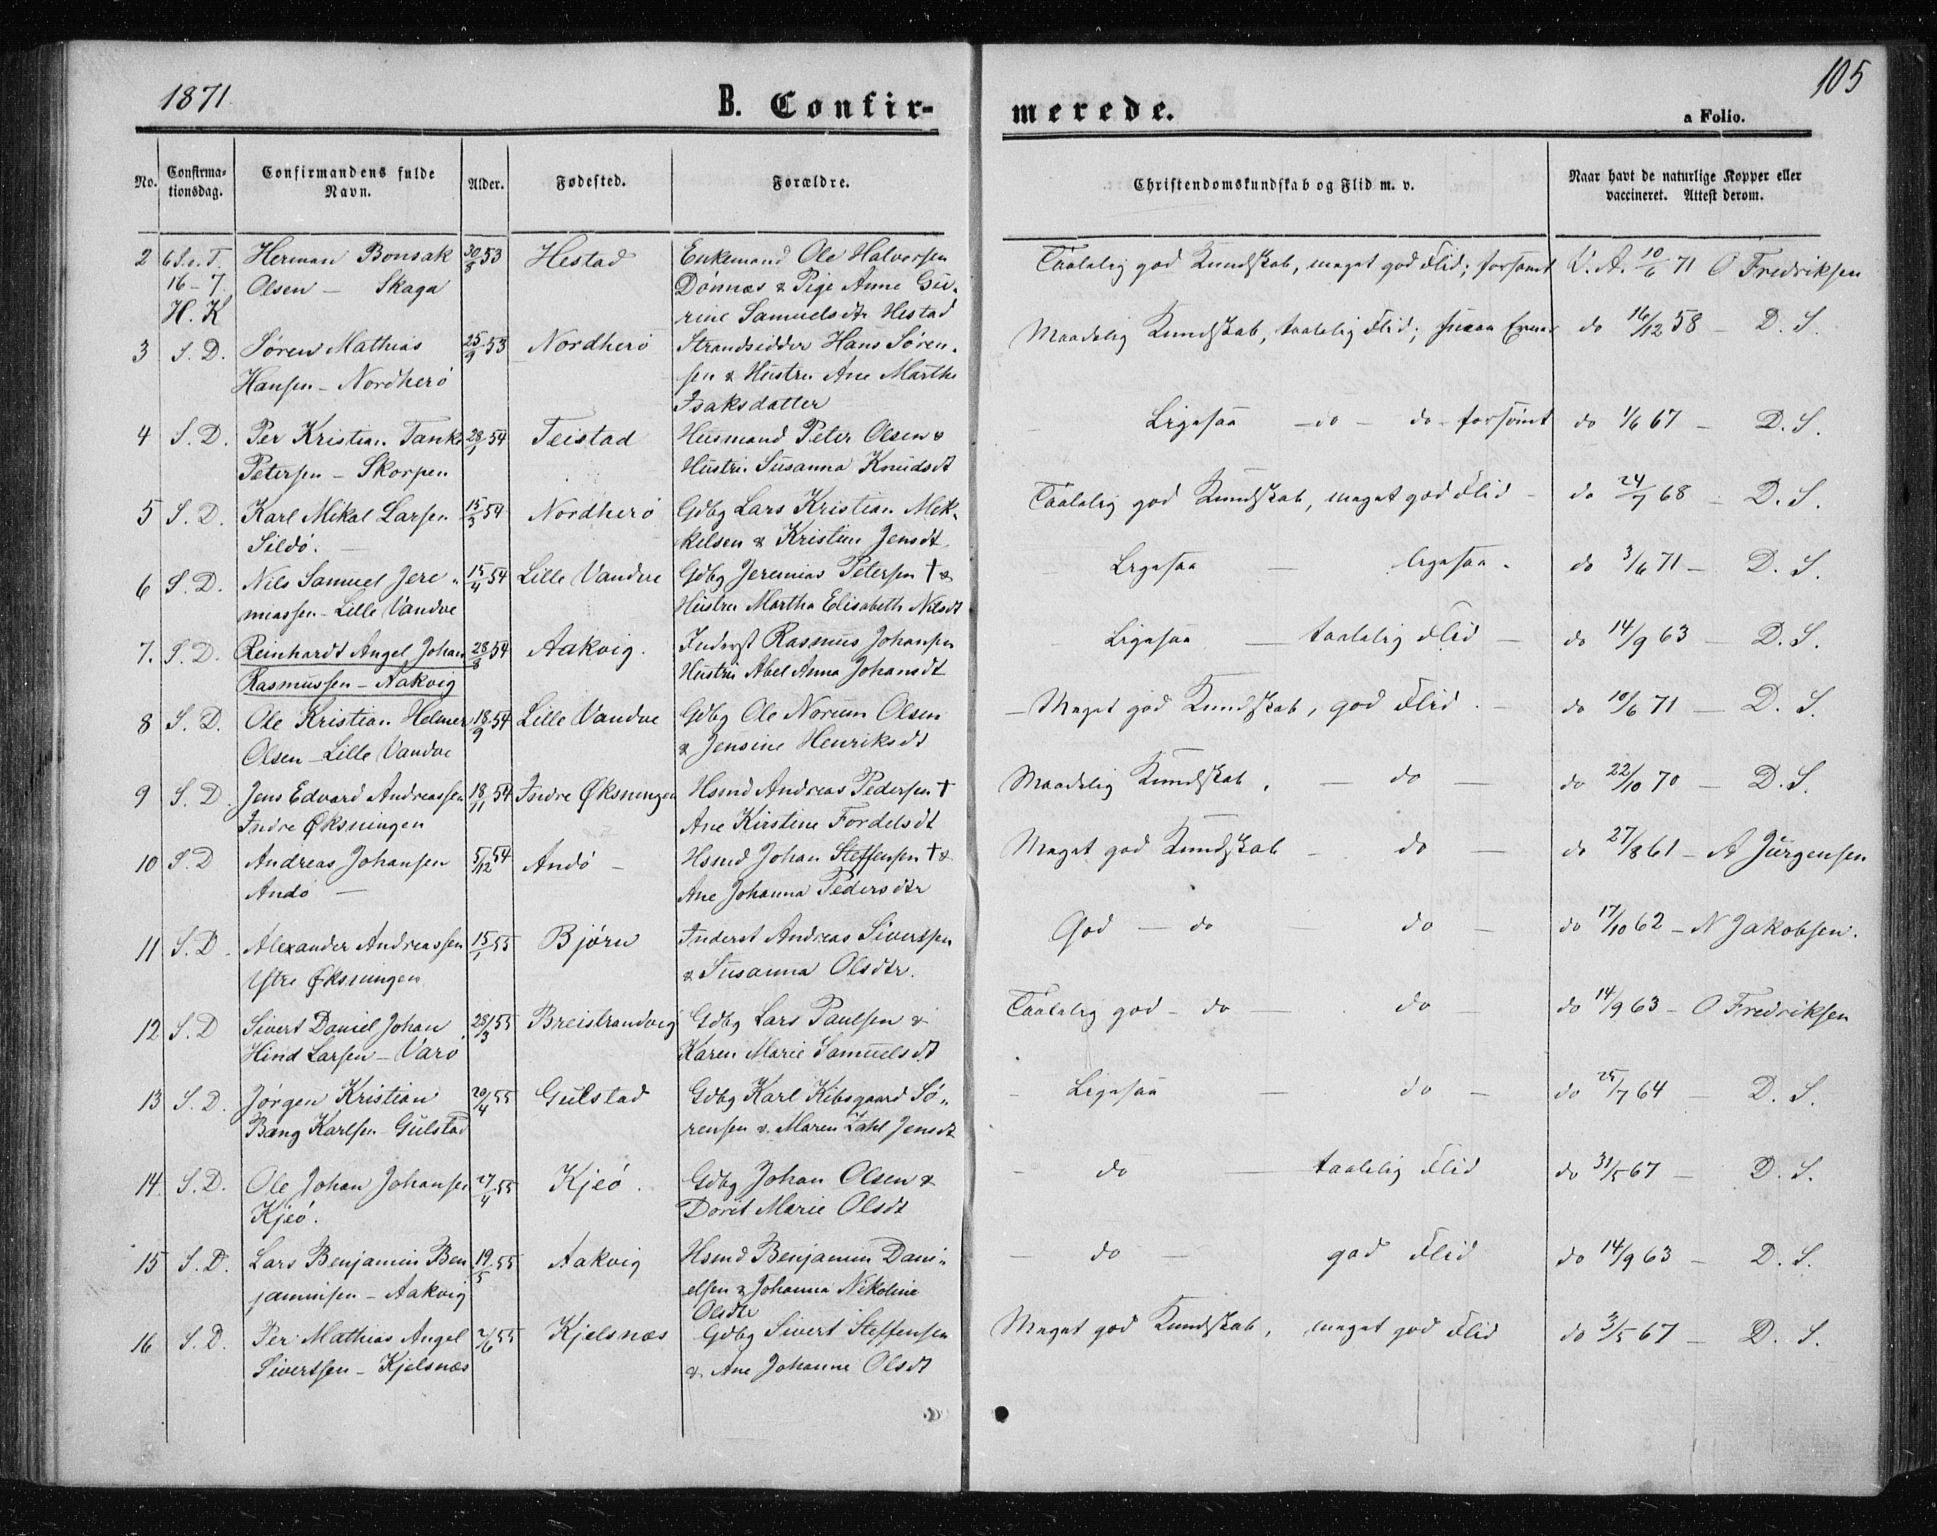 1871.
B. Confir-
merede.
105
a Folio.
No.
Confirma-
tionsdag.
Confirmandens fulde
Navn.
Alder.
Fødested.
Forældre.
Christendomskundskab og Flid m. v.
Naar havt de naturlige Kopper eller
vaccineret. Attest derom.
2 6 S. e. T. Herman Bonsak 30/8 53 Hestad Enkemand Ole Halvorsen Taalelig god Kundskab, meget god Flid; forsømt V. A. 10/6 71 O Fredriksen
16-7. Olsen - Skaga Dønnæs & Pige Anne Gu-
H. K rine Samuelsdtr Hestad
3 S. D. Søren Mathias 25/9 53 Nordherø Strandsidder Hans Søren- Maadelig Kundskab, taalelig Flid; do 16/12 58 - D. S.
Hansen - Nordherø sen & Hustru Ane Marthe
Isaksdatter
4 S. D. Per Kristian Tank 28/1 54 Teistad Husmand Peter Olsen & Ligesaa - do - do - forsømt do 1/6 67 - D. S.
Petersen - Skorpen Hustru Susanna Knudsdt
5 S. D. Karl Mikal Larsen 15/3 54 Nordherø Gdbg Lars Kristian Mek- Taalelig god Kundskab, meget god Flid - do 24/7 68 - D. S.
Sildø. - kelsen & Kristine Jensdt.
6 S. D. Nils Samuel Jere- 15/4 54 Lille Vandve Gdbg Jeremias Petersen † & Ligesaa - ligesaa. do 3/6 71 - D. S.
miassen - Lille Vandve Hustru Martha Elisabeth Nilsdt
7. S. D. Reinhardt Angel Johan 28/8 54 Aakvig. Inderst Rasmus Johansen Ligesaa - taalelig Flid - do 14/9 63 - D. S.
Rasmussen - Aakvig Hustru Abel Anna Johansdt
8 S. D. Ole Kristian Helmer 18/9 54 Lille Vandve Gdbg Ole Norum Olsen - Meget god Kundskab, god Flid. - do 10/6 71 - D. S.
Olsen - Lille Vandve & Jensine Henriksdt
9 S. D. Jens Edvard Andreassen 18/11 54 Indre Øksningen Hsmd Andreas Pedersen † Maadelig Kundskab, - do - do 22/10 70 - D. S.
Indre Øksningen Ane Kirstine Fordelsdt
10 S. D Andreas Johansen 5/12 54 Andø - Hsmd Johan Steffensen † & Meget god Kundskab - do - do 27/8 61 - A Jürgensen
Andø - Ane Johanna Pedersdtr
11 S. D. Alexander Andreassen 15/1 55 Bjørn Inderst Andreas Sivertsen God - do do - do 17/10 62 - N Jakobsen.
Ytre Øksningen & Susanna Olsdtr.
12 S. D Sivert Daniel Johan 28/3 55 Breistrandvig Gdbg Lars Paulsen & Taalelig god - do - do - do 14/9 63 - O Fredriksen
Hind Larsen - Varø Karen Marie Samuelsdt
13 S. D. Jørgen Kristian 20/4 55 Gulstad Gdbg Karl Kibsgaard Sø- - Ligesaa - do - do 25/7 64 - D. S.
Bang Karlsen - Gulstad rensen & Maren Zahl Jensdt
14. S. D. Ole Johan Johansen 27/4 55 Kjeø. Gdbg Johan Olsen & - do - taalelig Flid do 31/5 67 - D. S.
Kjeø. Dorit Marie Olsdt
15 S. D. Lars Benjamin Ben 19/5 55 Aakvig Hsmd Benjamin Dani- - do - god Flid do 14/9 63 - D. S.
jaminsen - Aakvig elsen & Johanna Nikoline
Olsdtr
16 S. D. Per Mathias Angel 2/6 55 Kjelsnæs Gdbg Sivert Steffensen Meget god Kundskab, meget god Flid do 3/5 67 - D. S.
Sivertsen - Kjelsnæs & Ane Johanne Olsdt